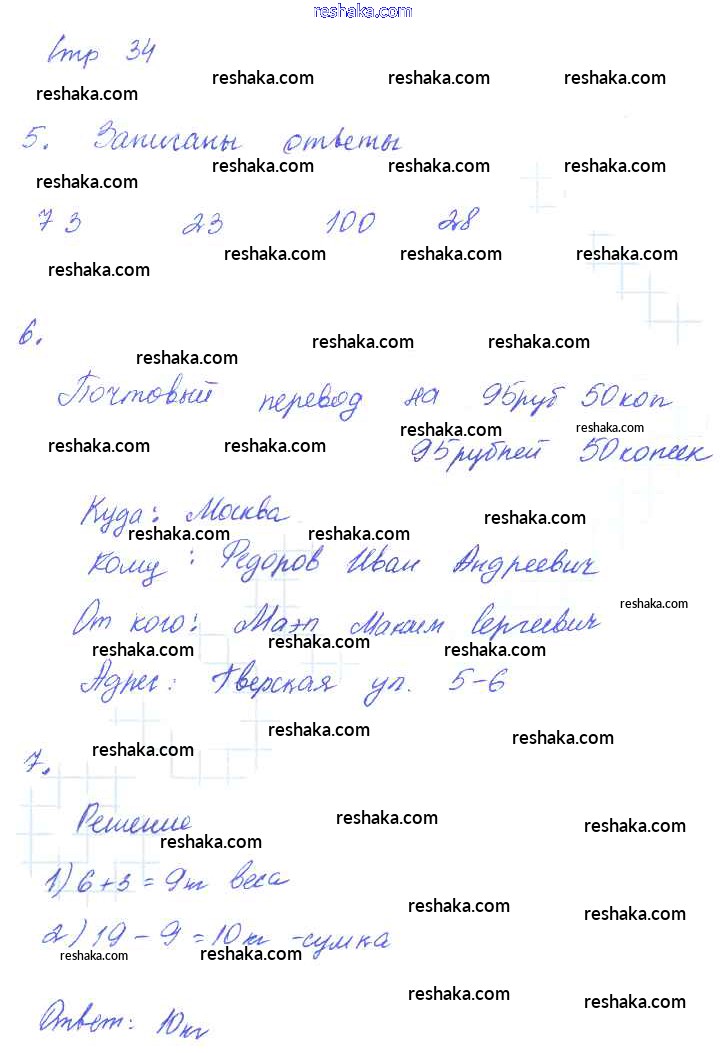 reshaka.com
Стр 34
reshaka.com reshaka.com reshaka.com
reshaka.com
5. Записаны ответы
reshaka.com reshaka.com reshaka.com
reshaka.com
73 23 100 28
reshaka.com reshaka.com reshaka.com
reshaka.com
6.
reshaka.com reshaka.com
reshaka.com
Почтовый перевод на 95руб 50коп
reshaka.com reshaka.com
reshaka.com reshaka.com
95рублей 50копеек
Куда: Москва
reshaka.com
reshaka.com reshaka.com
Кому: Федоров Иван Андреевич
reshaka.com
От кого: Маэп Максим Сергеевич
reshaka.com reshaka.com reshaka.com
Адрес: Тверская ул. 5-6
reshaka.com reshaka.com
reshaka.com
7.
Решение
reshaka.com reshaka.com
reshaka.com
1) 6+3=9кг веса
reshaka.com reshaka.com
2) 19-9=10кг -сумка
reshaka.com reshaka.com
reshaka.com reshaka.com
Ответ: 10кг